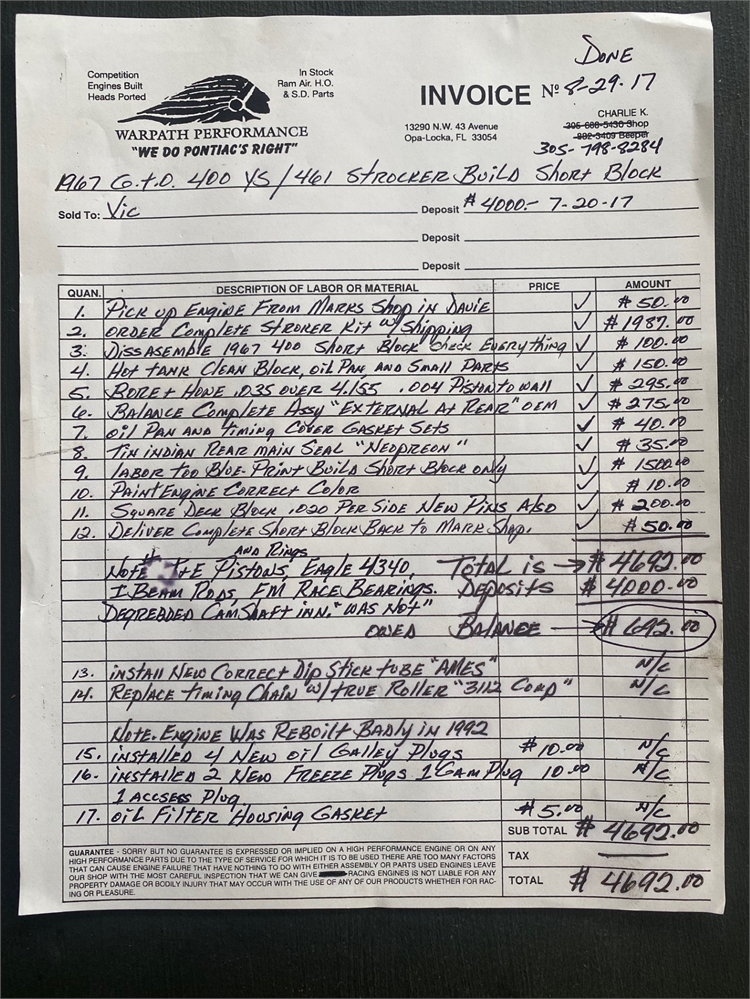 DONE
Competition
Engines Built
Heads Ported
In Stock
Ram Air. H.O.
& S.D. Parts
WARPATH PERFORMANCE
"WE DO PONTIAC'S RIGHT"
INVOICE No 8-29-17
13290 N.W. 43 Avenue
Opa-Locka, FL 33054
CHARLIE K.
305-688-5430 Shop
882-3409 Beeper
305-798-8284
1967 G.T.O. 400 YS/461 STROCKER BUILD SHORT BLOCK
Sold To: Vic Deposit $4000.- 7-20-17
Deposit
Deposit
QUAN. DESCRIPTION OF LABOR OR MATERIAL PRICE AMOUNT
1. PICK UP ENGINE FROM MARKS SHOP IN DAVIE ✓ $50.00
2. ORDER COMPLETE STROKER KIT W/SHIPPING ✓ $1987.00
3. DISSASEMBLE 1967 400 SHORT BLOCK CHECK EVERYTHING ✓ $100.00
4. HOT TANK CLEAN BLOCK, OIL PAN AND SMALL PARTS ✓ $150.00
5. BORE + HONE .035 OVER 4.155 .004 PISTON TO WALL ✓ $295.00
6. BALANCE COMPLETE ASSY "EXTERNAL AT REAR" OEM ✓ $275.00
7. OIL PAN AND TIMING COVER GASKET SETS ✓ $40.00
8. TIN INDIAN REAR MAIN SEAL "NEOPREON" ✓ $35.00
9. LABOR TOO BLUE-PRINT BUILD SHORT BLOCK ONLY ✓ $1500.00
10. PAINT ENGINE CORRECT COLOR ✓ $10.00
11. SQUARE DECK BLOCK .020 PER SIDE NEW PINS ALSO ✓ $200.00
12. DELIVER COMPLETE SHORT BLOCK BACK TO MARK SHOP. ✓ $50.00
AND RINGS
NOTE PISTONS, EAGLE 4340, TOTAL IS → $4692.00
I BEAM RODS, FM RACE BEARINGS. DEPOSITS $4000.00
DEGREADED CAMSHAFT INN. "WAS NOT"
OWED BALANCE → $692.00
13. INSTALL NEW CORRECT DIP STICK TUBE "AMES" N/C
14. REPLACE TIMING CHAIN W/TRUE ROLLER "3112 COMP" N/C
NOTE. ENGINE WAS REBOILT BADLY IN 1992
15. INSTALLED 4 NEW OIL GALLEY PLUGS $10.00 N/C
16. INSTALLED 2 NEW FREEZE PLUGS 1 CAM PLUG 10.00 N/C
1 ACCSESS PLUG
17. OIL FILTER HOUSING GASKET $5.00 N/C
SUB TOTAL $4692.00
GUARANTEE - SORRY BUT NO GUARANTEE IS EXPRESSED OR IMPLIED ON A HIGH PERFORMANCE ENGINE OR ON ANY
HIGH PERFORMANCE PARTS DUE TO THE TYPE OF SERVICE FOR WHICH IT IS TO BE USED THERE ARE TOO MANY FACTORS
THAT CAN CAUSE ENGINE FAILURE THAT HAVE NOTHING TO DO WITH EITHER ASSEMBLY OR PARTS USED ENGINES LEAVE
OUR SHOP WITH THE MOST CAREFUL INSPECTION THAT WE CAN GIVE RACING ENGINES IS NOT LIABLE FOR ANY
PROPERTY DAMAGE OR BODILY INJURY THAT MAY OCCUR WITH THE USE OF ANY OF OUR PRODUCTS WHETHER FOR RAC-
ING OR PLEASURE.
TAX
TOTAL $4692.00